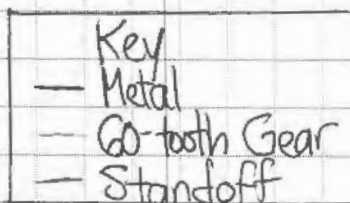 Key
— Metal
— 60-tooth Gear
— Standoff